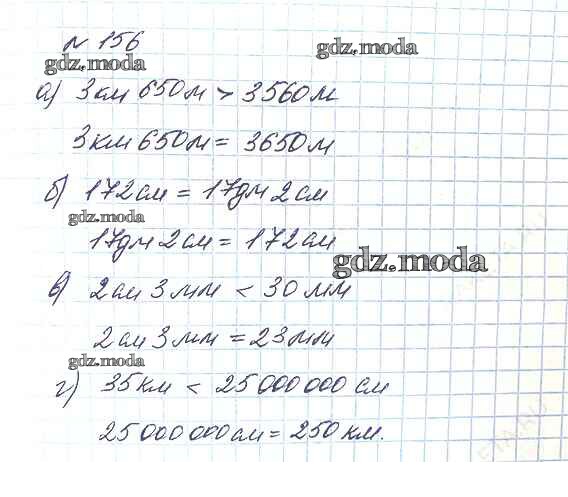 № 156
gdz.moda
gdz.moda
а) 3км 650м > 3560м
3км 650м = 3650м
б) 172см = 17дм 2см
gdz.moda
17дм 2см = 172см
gdz.moda
в) 2см 3мм < 30мм
2см 3мм = 23мм
gdz.moda
г) 35км < 25 000 000 см
25 000 000 см = 250 км.